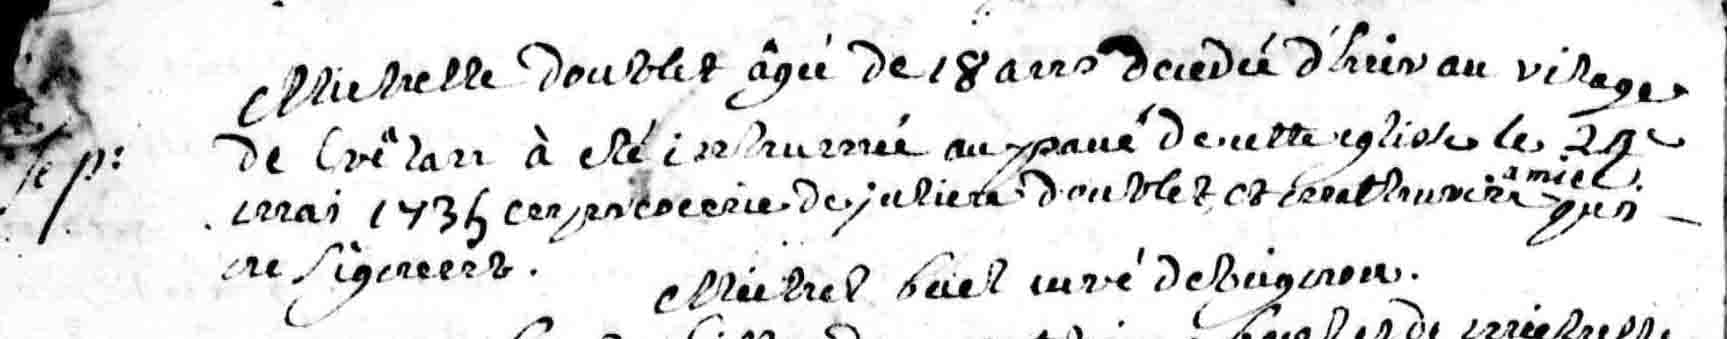 Michelle doublet âgé de 18 ans decedée d'hier au vilage
sep: de Crêlan à eté inhumée au pavé de cette eglise le 29e
mai 1735 en presence de julien doublet, et mathurin amiel qui
ne signent.
Michel buel curé de bignon.
de michelle